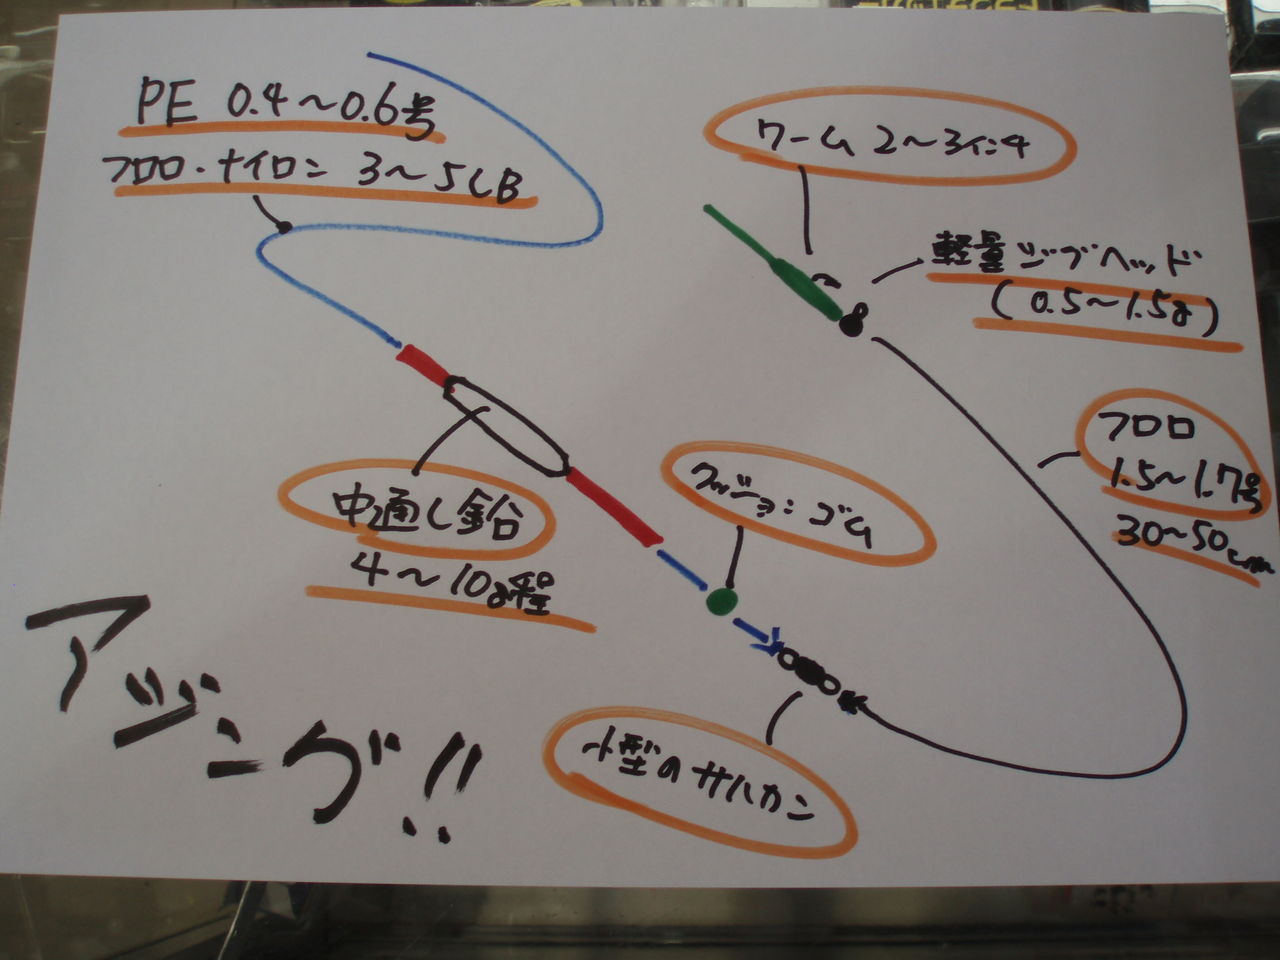 PE 0.4～0.6号
フロロ・ナイロン 3～5LB
ワーム 2～3インチ
軽量ジグヘッド
(0.5～1.5g)
フロロ
1.5～1.7号
30～50cm
中通し鉛
4～10g程
クッションゴム
小型のサルカン
アジング!!